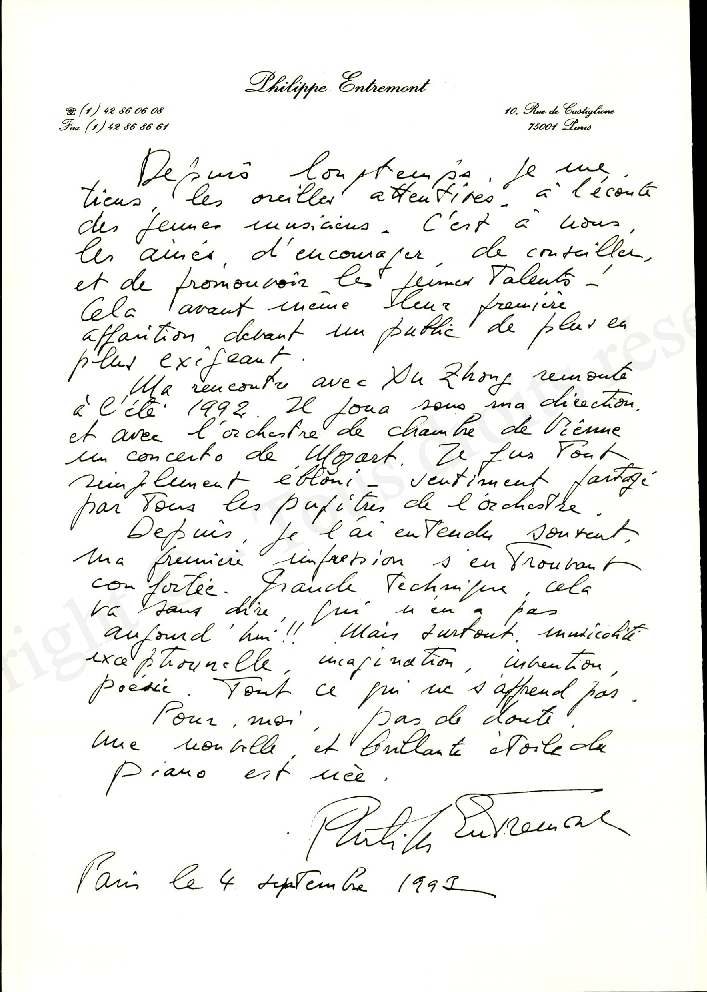 Philippe Entremont
☎ (1) 42 86 06 08
Fax (1) 42 86 86 61
10, Rue de Castiglione
75001 Paris
Depuis longtemps, je me
tiens, les oreilles attentives, à l'écoute
des jeunes musiciens. C'est à nous,
les ainés, d'encourager, de conseiller,
et de promouvoir les jeunes talents !
Cela avant même leur première
apparition devant un public de plus en
plus exigeant.
Ma rencontre avec Xu Zhong remonte
à l'été 1992. Il joua sous ma direction,
et avec l'orchestre de chambre de Vienne
un concerto de Mozart. Je fus tout
simplement ébloui - sentiment partagé
par tous les pupitres de l'orchestre.
Depuis, je l'ai entendu souvent,
ma première impression s'en trouvant
confortée. Grande technique, cela
va sans dire, qui n'en a pas
aujourd'hui !! Mais surtout, musicalité
exceptionnelle, imagination, invention,
poésie. Tout ce qui ne s'apprend pas.
Pour moi, pas de doute,
une nouvelle et brillante étoile du
piano est née.
Philippe Entremont
Paris le 4 septembre 1993
right © - Tous droits rese